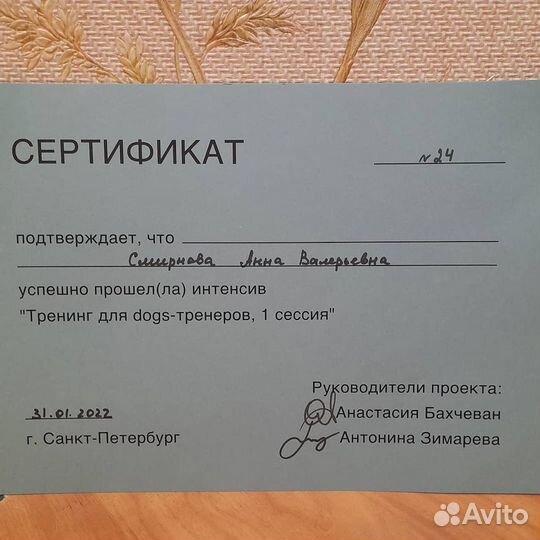 СЕРТИФИКАТ
N 24
подтверждает, что
Смирнова Анна Валерьевна
успешно прошел(ла) интенсив
"Тренинг для dogs-тренеров, 1 сессия"
Руководители проекта:
31.01.2022
Анастасия Бахчеван
г. Санкт-Петербург
Антонина Зимарева
Avito